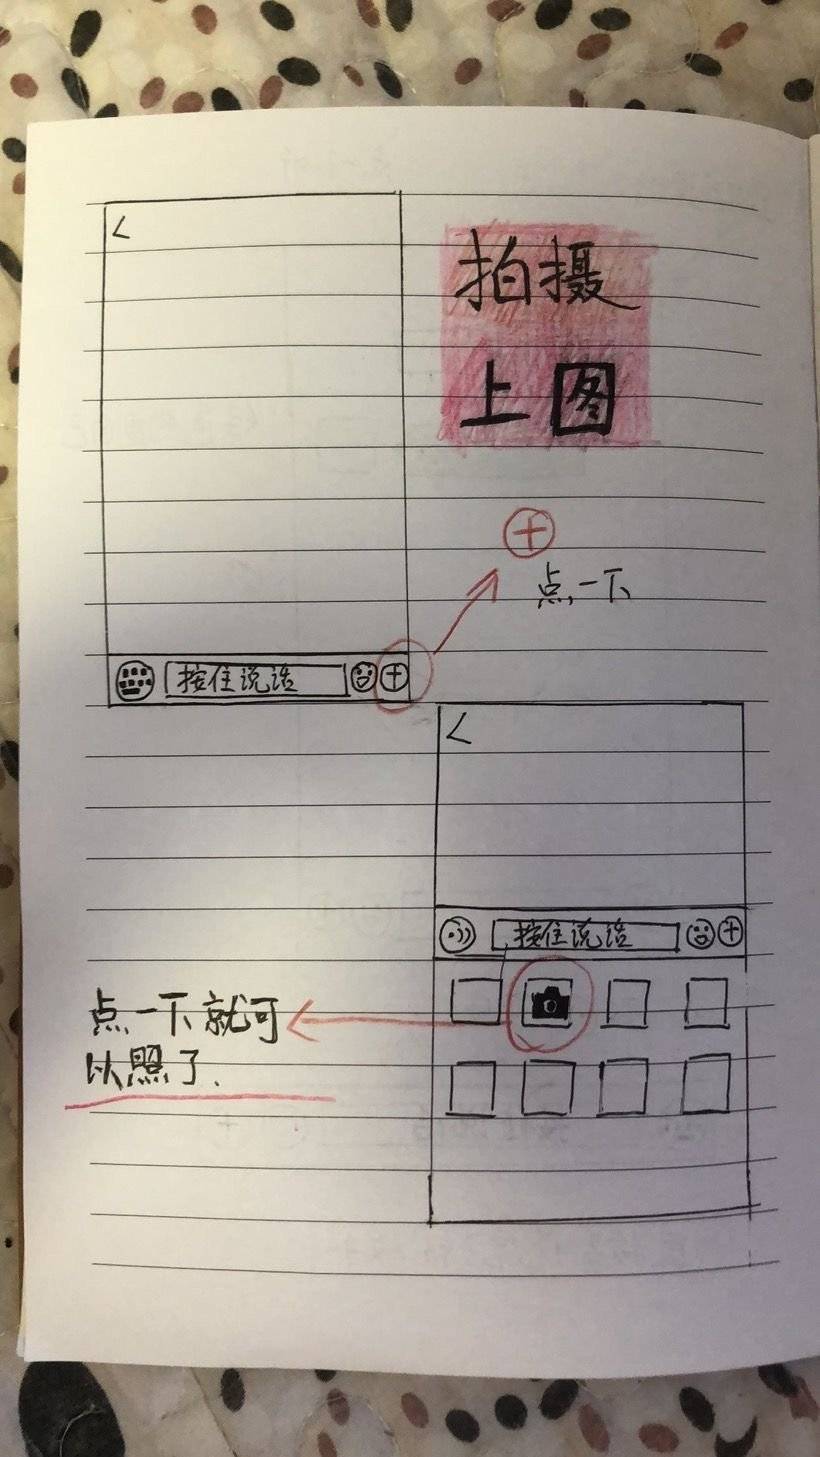 <
拍摄
上图
点一下
按住说话
<
按住说话
点一下就可
以照了.